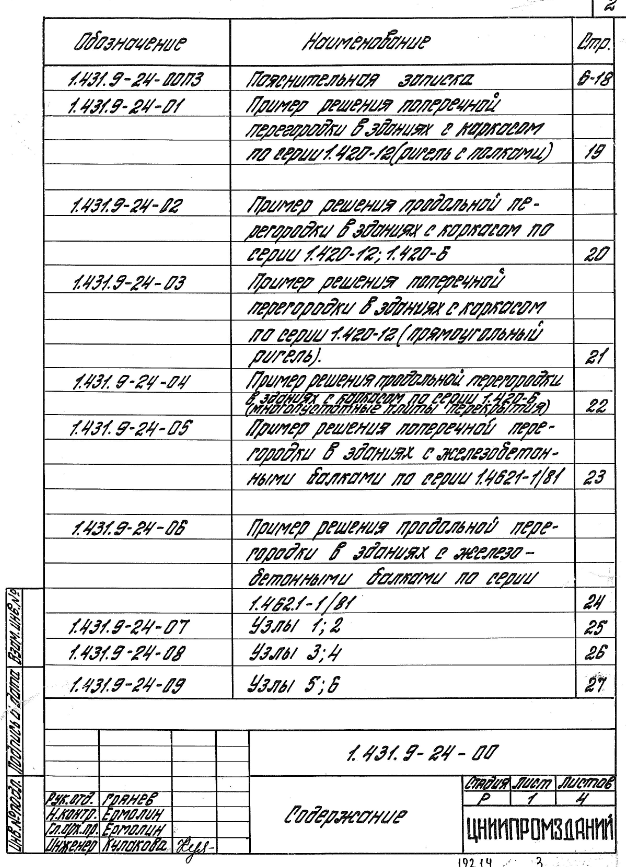 2
Обозначение Наименование Стр.
1.431.9-24-00ПЗ Пояснительная записка 6-18
1.431.9-24-01 Пример решения поперечной
перегородки в зданиях с каркасом
по серии 1.420-12 (ригель с полками) 19
1.431.9-24-02 Пример решения продольной пе-
регородки в зданиях с каркасом по
серии 1.420-12; 1.420-6 20
1.431.9-24-03 Пример решения поперечной
перегородки в зданиях с каркасом
по серии 1.420-12 (прямоугольный
ригель). 21
1.431.9-24-04 Пример решения продольной перегородки
в зданиях с каркасом по серии 1.420-6
(многопустотные плиты перекрытия) 22
1.431.9-24-05 Пример решения поперечной пере-
городки в зданиях с железобетон-
ными балками по серии 1.4621-1/81 23
1.431.9-24-06 Пример решения продольной пере-
городки в зданиях с железо-
бетонными балками по серии
1.462.1-1/81 24
1.431.9-24-07 Узлы 1; 2 25
1.431.9-24-08 Узлы 3; 4 26
1.431.9-24-09 Узлы 5; 6 27
1.431.9-24-00
Содержание
Стадия Лист Листов
Р 1 4
ЦНИИПРОМЗДАНИЙ
Рук.отд. Гранев
Н.контр. Ермолин
Гл.арх.пр. Ермолин
Инженер Кулакова
Взам.инв.№
Подпись и дата
Инв.№подл.
19214 3